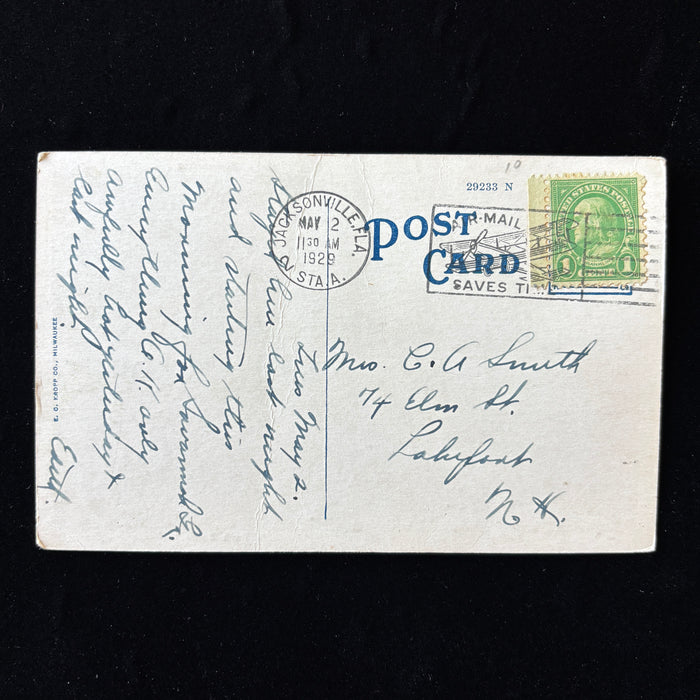 10
29233 N
POST
CARD
AIR-MAIL
SAVES TIME
UNITED STATES POSTAGE
1 1
JACKSONVILLE, FLA.
MAY 2
11 30 AM
1929
2 STA. A.
Mrs. C. A Smith
74 Elm St.
Lakeport
N H.
May 2.
Stayed here last night
and starting this
Morning for Savannah Ga.
Everything O.K. only
awfully hot yesterday &
last night.
E. C. KROPP CO., MILWAUKEE